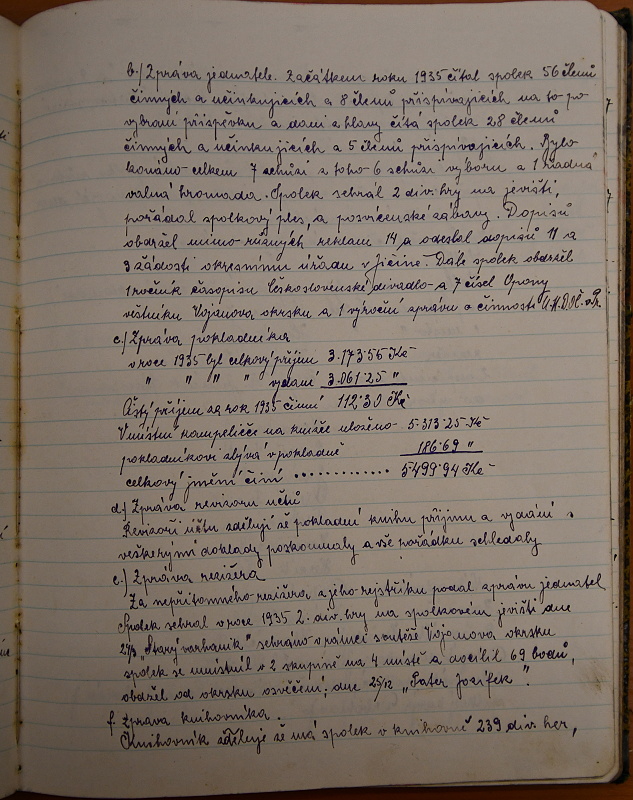 b./ Zpráva jednatele. Začátkem roku 1935 čítal spolek 56 členů
činných a učinkujících a 8 členů přispívajících na to po
vybraní příspěvku a dani z hlavy čítá spolek 28 členů
činných a učinkujících a 5 členů přispívajících. Bylo
konáno celkem 7 schůzí z toho 6 schůzí výboru a 1 řádná
valná hromada. Spolek sehrál 2 div. hry na jevišti,
pořádal spolkový ples, a posvícenské zábavy. Dopisů
obdržel mimo různých reklam 14 a odeslal dopisů 11 a
3 žádosti okresnímu úřadu v Jičíně. Dále spolek obdržel
1 ročník časopisu Československé divadlo a 7 čísel Opony
věstníku Vojanova okrsku a 1 výroční zprávu o činnosti Ú.M.D.O.Č. v Pr.
c./ Zpráva pokladníka
v roce 1935 byl celkový příjem 3.173·55 Kč
" " " " vydání 3.061·25 "
Čistý příjem za rok 1935 činní 112·30 Kč
V místní kampeličce na knížce uloženo 5·313·25 Kč
pokladníkovi zbývá v pokladně 186·69 "
celkový jmění činí ............. 5·499·94 Kč
d./ Zpráva revizorů účtů
Revizoři účtu zdělují že pokladní knihu příjmu a vydání s
veškerými doklady poskoumaly a vše pořádku schledaly
e./ Zpráva režiséra
Za nepřítomného režiséra z jeho rejstříku podal zprávu jednatel
Spolek sehrál v roce 1935 2. div. hry na spolkovém jevišti dne
"Starý varhaník" sehráno v rámci soutěže Vojanova okrsku
spolek se umístnil v 2 skupině na 4 místě a docílil 69 bodů,
obdržel od okrsku osvěčení; dne 25/12 "Pater Jozífek".
f. Zpráva knihovníka.
Knihovník zděluje že má spolek v knihovně 239 div. her,